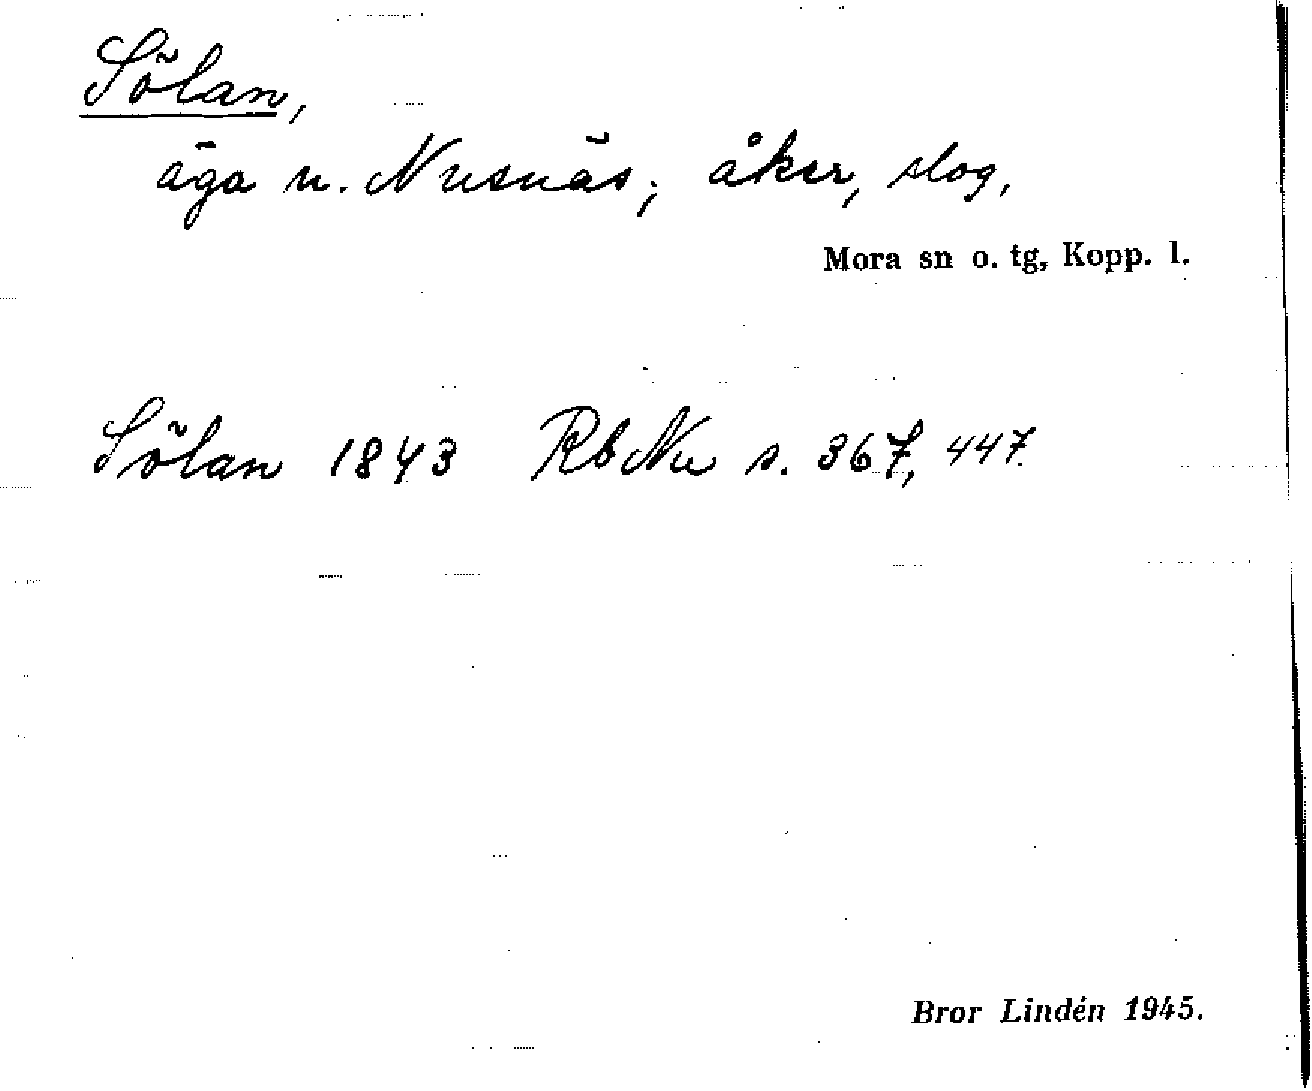 Sölan,
äga u. Nusnäs; åker, slog,
Mora sn o. tg, Kopp. l.
Sölan 1843 RbNu s. 367, 447.
Bror Lindén 1945.